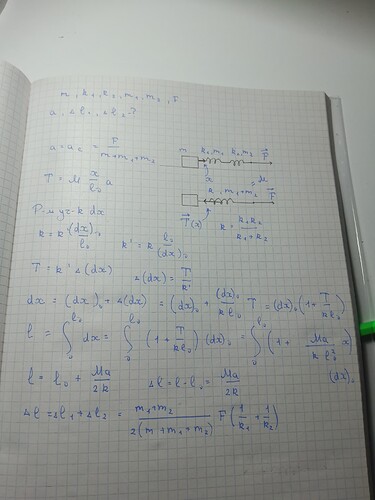 m, k₁, k₂, m₁, m₂, F
a, Δl₁, Δl₂ - ?
a = a₂ = F/(m+m₁+m₂)
m k₁,m₁ k₂,m₂ F⃗
x
T = M x/l₀ a
k, m₁+m₂ F⃗
T⃗(x) k = k₁k₂/(k₁+k₂)
Р-м уч-к dx
k = k' (dx)₀/l₀ k' = k l₀/(dx)₀
T = k' Δ(dx) Δ(dx) = T/k'
dx = (dx)₀ + Δ(dx) = (dx)₀ + (dx)₀/(k l₀) T = (dx)₀ (1 + T/(k l₀))
l = ∫₀^l₀ dx = ∫₀^l₀ (1 + T/(k l₀)) (dx)₀ = ∫₀^l₀ (1 + Ma/(k l₀²) x) (dx)₀
l = l₀ + Ma/2k Δl = l - l₀ = Ma/2k
Δl = Δl₁ + Δl₂ = (m₁+m₂)/(2(m+m₁+m₂)) F (1/k₁ + 1/k₂)